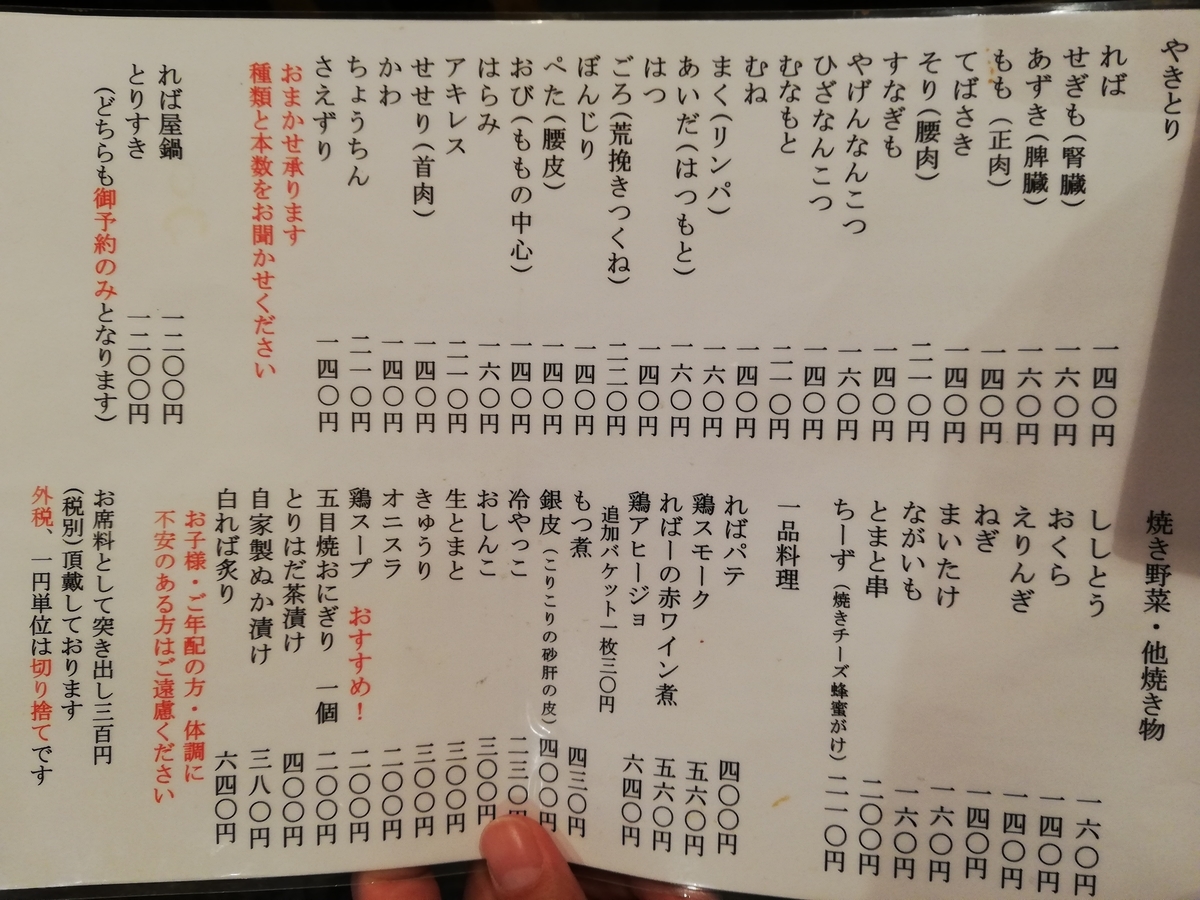 やきとり
れば 一四〇円
せぎも(腎臓) 一六〇円
あずき(脾臓) 一六〇円
もも(正肉) 一四〇円
てばさき 一四〇円
そり(腰肉) 二一〇円
すなぎも 一四〇円
やげんなんこつ 一六〇円
ひざなんこつ 一四〇円
むなもと 二一〇円
むね 一四〇円
まく(リンパ) 一六〇円
あいだ(はつもと) 一六〇円
はつ 一四〇円
ごろ(荒挽きつくね) 二二〇円
ぼんじり 一四〇円
ぺた(腰皮) 一四〇円
おび(ももの中心) 一四〇円
はらみ 一六〇円
アキレス 二一〇円
せせり(首肉) 一四〇円
かわ 一四〇円
ちょうちん 二一〇円
さえずり 一四〇円
おまかせ承ります
種類と本数をお聞かせください
れば屋鍋 一二〇〇円
とりすき 一二〇〇円
(どちらも御予約のみとなります)
焼き野菜・他焼き物
ししとう 一六〇円
おくら 一四〇円
えりんぎ 一四〇円
ねぎ 一四〇円
まいたけ 一六〇円
ながいも 一六〇円
とまと串 二〇〇円
ちーず(焼きチーズ蜂蜜がけ) 二一〇円
一品料理
ればパテ 四〇〇円
鶏スモーク 五六〇円
ればーの赤ワイン煮 五六〇円
鶏アヒージョ 六四〇円
追加バケット一枚三〇円
もつ煮 四三〇円
銀皮(こりこりの砂肝の皮) 四〇〇円
冷やっこ 二三〇
おしんこ 三〇〇円
生とまと 三〇〇円
きゅうり 三〇〇円
オニスラ 二〇〇円
鶏スープ おすすめ! 二〇〇円
五目焼おにぎり 一個 二〇〇円
とりはだ茶漬け 四〇〇円
自家製ぬか漬け 三八〇円
白れば炙り 六四〇円
お子様・ご年配の方・体調に
不安のある方はご遠慮ください
お席料として突き出し三百円
(税別)頂戴しております
外税、一円単位は切り捨てです